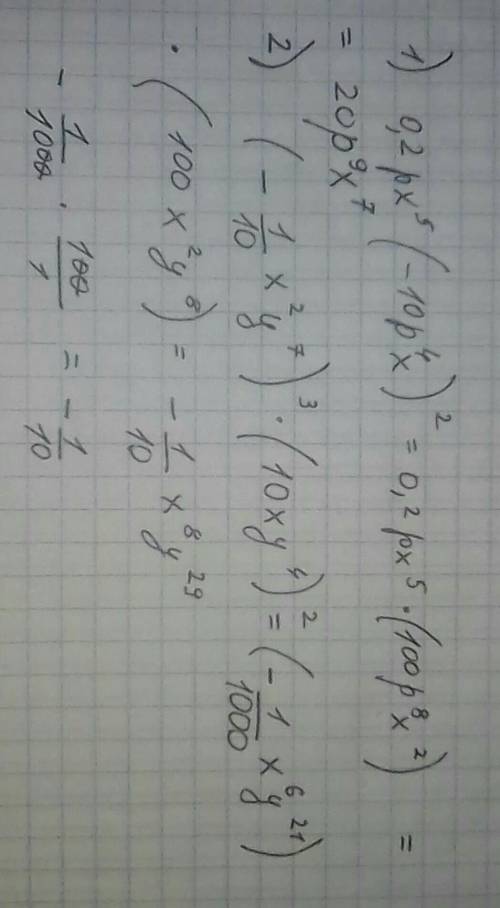 1) 0,2px⁵(-10p⁴x)² = 0,2px⁵·(100p⁸x²) =
= 20p⁹x⁷
2) (-1/10 x²y⁷)³·(10xy⁴)² = (-1/1000 x⁶y²¹)
·(100x²y⁸) = -1/10 x⁸y²⁹
-1/1000 · 100/1 = -1/10